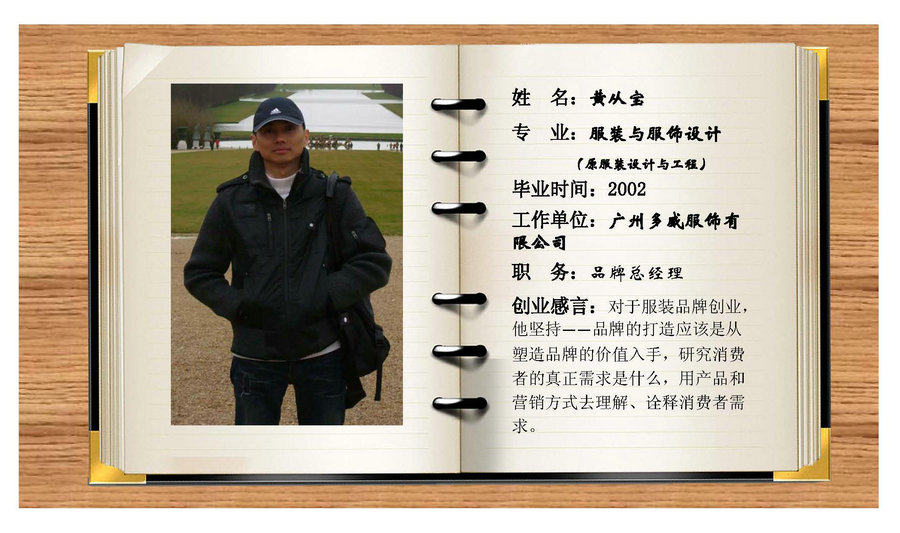 姓 名：黄从宝
专 业：服装与服饰设计
（原服装设计与工程）
毕业时间：2002
工作单位：广州多威服饰有
限公司
职 务：品牌总经理
创业感言：对于服装品牌创业，
他坚持——品牌的打造应该是从
塑造品牌的价值入手，研究消费
者的真正需求是什么，用产品和
营销方式去理解、诠释消费者需
求。